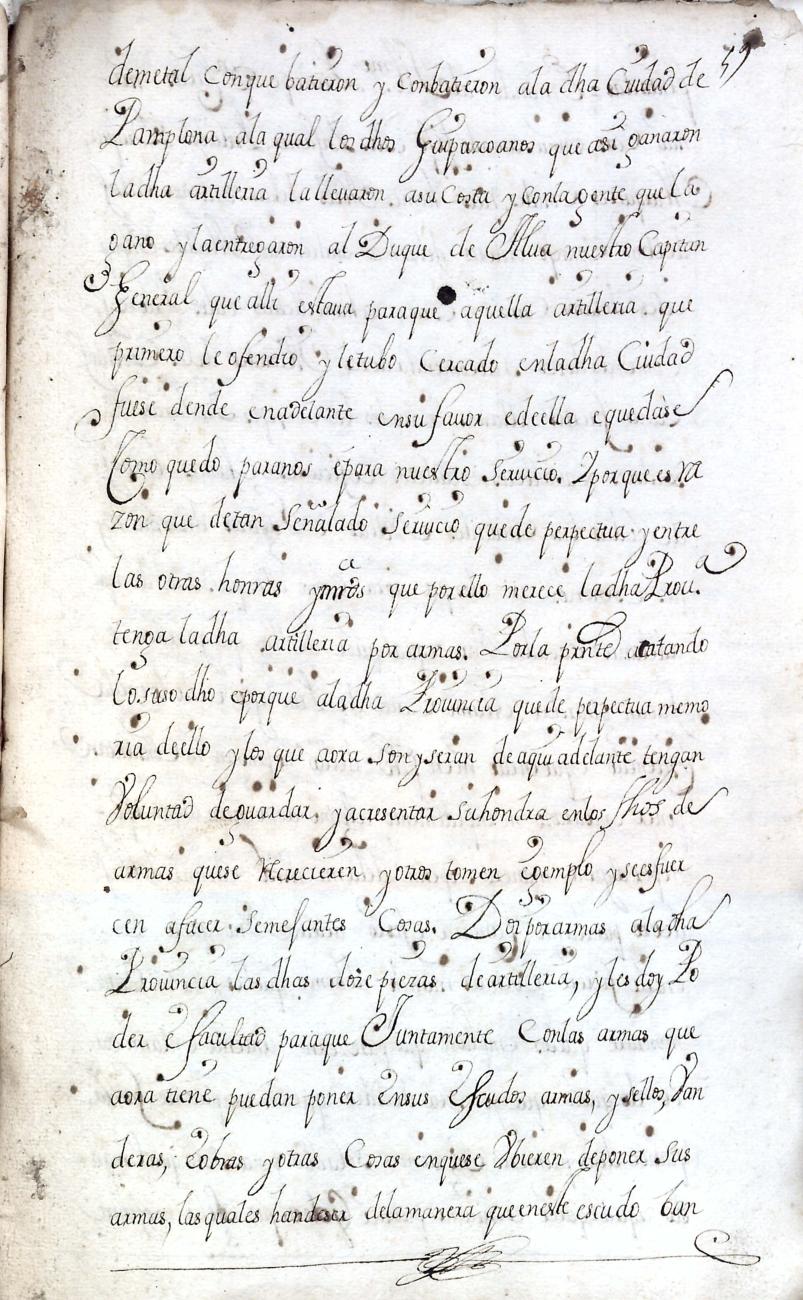 59
demetal conque batieron y conbatieron ala dha Ciudad de
Pamplona ala qual los dhos Guipuzcoanos que asi ganaron
ladha artilleria la lleuaron asu Costa y Conlagente que la
gano y laentregaron al Duque de Alua nuestro Capitan
General que alli estaua paraque aquella artilleria que
primero le ofendio y letubo Cercado enladha Ciudad
fuese dende enadelante ensu fauor edeella equedase
Como quedo paranos epara nuestro Seruicio. Y porque es Ra
zon que detan Señalado Seruicio quede perpectua y entre
las otras honras que por ello merece ladha Prouª.
tenga ladha artilleria por armas. Por la prnte acatando
lo suso dho eporque aladha Prouincia quede perpectua memo
ria deello y los que aora son y seran de aqui adelante tengan
Voluntad deguardar y acresentar Suhondra enlos fhos de
armas quese Recrecieren y otros tomen egemplo y seesfuer
cen afacer Semejantes Cosas. Doi por armas aladha
Prouincia las dhas doze piezas de artilleria, y les doy Po
der e facultad paraque Juntamente Conlas armas que
aora tiene puedan poner ensus Escudos armas, y sellos, Van
deras, eobras y otras Cosas enquese Vbieren deponer Sus
armas, las quales handeser delamanera que eneste escudo ban